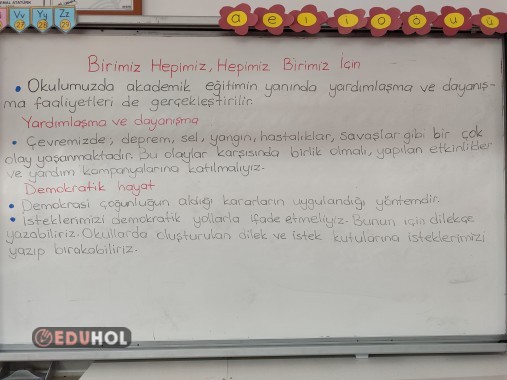 Vv Yy Zz
27 28 29
a e ı i o ö u ü
Birimiz Hepimiz, Hepimiz Birimiz İçin
• Okulumuzda akademik eğitimin yanında yardımlaşma ve dayanış-
ma faaliyetleri de gerçekleştirilir.
Yardımlaşma ve dayanışma
• Çevremizde; deprem, sel, yangın, hastalıklar, savaşlar gibi bir çok
olay yaşanmaktadır. Bu olaylar karşısında birlik olmalı, yapılan etkinlikler
ve yardım kampanyalarına katılmalıyız.
Demokratik hayat
• Demokrasi çoğunluğun aldığı kararların uygulandığı yöntemdir.
• İsteklerimizi demokratik yollarla ifade etmeliyiz. Bunun için dilekçe
yazabiliriz. Okullarda oluşturulan dilek ve istek kutularına isteklerimizi
yazıp bırakabiliriz.
EDUHOL